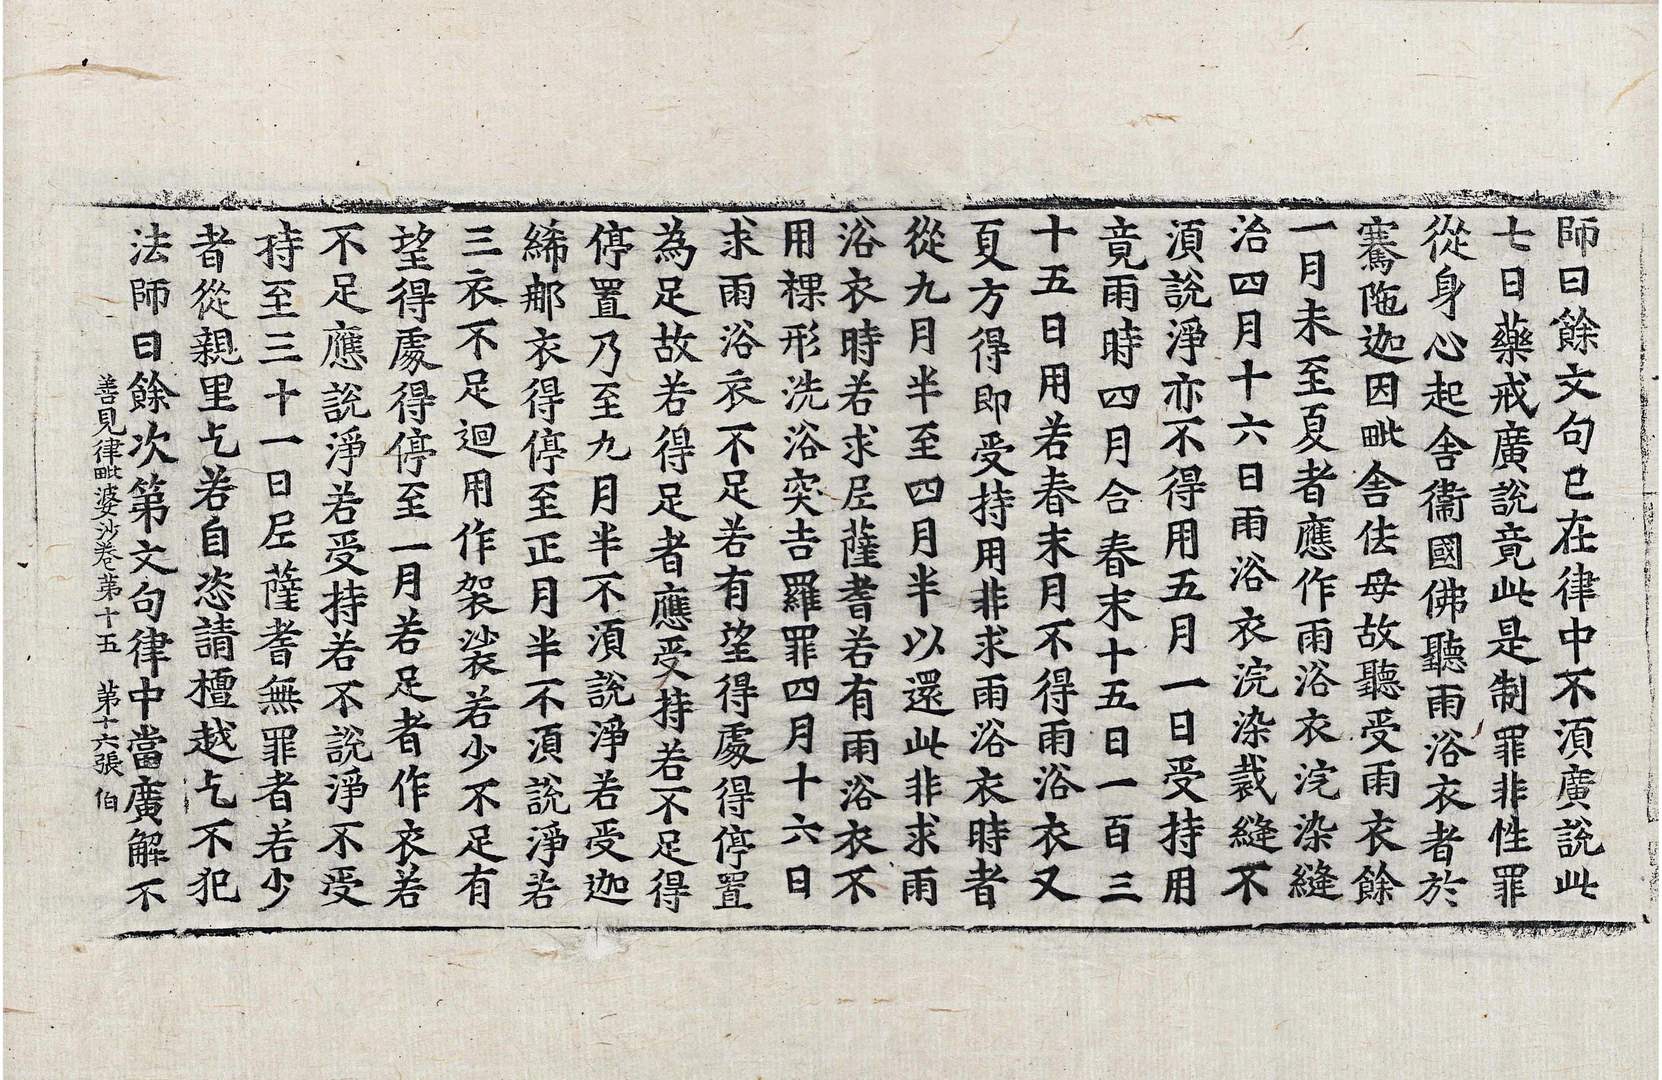 師曰餘文句已在律中不湏廣說此
七日藥戒廣說竟此是制罪非性罪
從身心起舍衞國佛聽雨浴衣者於
騫陁迦因毗舍佉母故聽受雨衣餘
一月未至夏者應作雨浴衣浣染縫
治四月十六日雨浴衣浣染裁縫不
湏說淨亦不得用五月一日受持用
竟雨時四月合春末十五日一百三
十五日用若春末月不得雨浴衣又
夏方得即受持用非求雨浴衣時者
從九月半至四月半以還此非求雨
浴衣時若求尼薩耆若有雨浴衣不
用裸形洗浴突吉羅罪四月十六日
求雨浴衣不足若有望得處得停置
為足故若得足者應受持若不足得
停置乃至九月半不湏說淨若受迦
絺那衣得停至正月半不湏說淨若
三衣不足迴用作袈裟若少不足有
望得處得停至一月若足者作衣若
不足應說淨若受持若不說淨不受
持至三十一日尼薩耆無罪者若少
者從親里乞若自恣請檀越乞不犯
法師曰餘次第文句律中當廣解不
善見律毗婆沙卷苐十五 苐十六張 伯